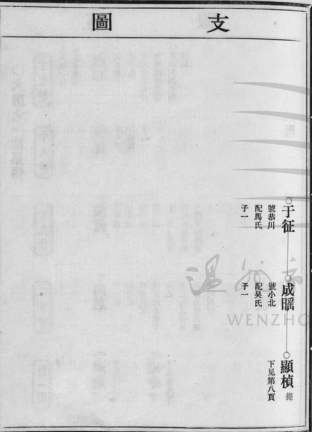 支圖
于征
號恭川
配馬氏
子一
成
號小北
配吳氏
子一
顯楨
下見第八頁
WENZHO